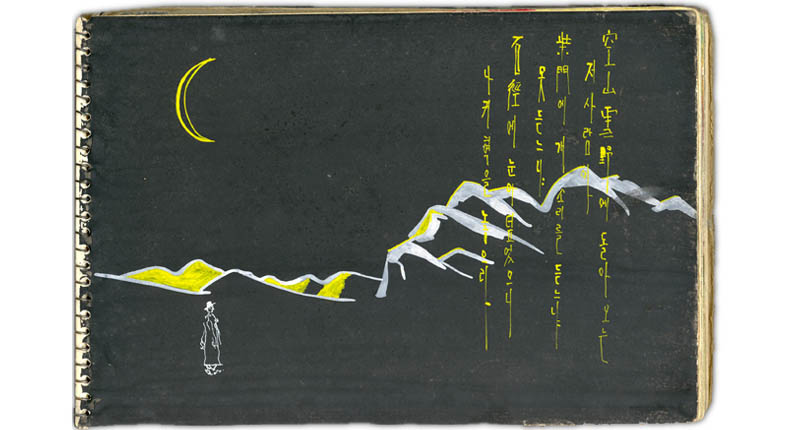 空山雪野에 돌아오는
저 사람아
柴門에 개 소리를 듣느냐
못 듣느냐
石徑에 눈이 덮였으니
나귀 혁을 놓으라